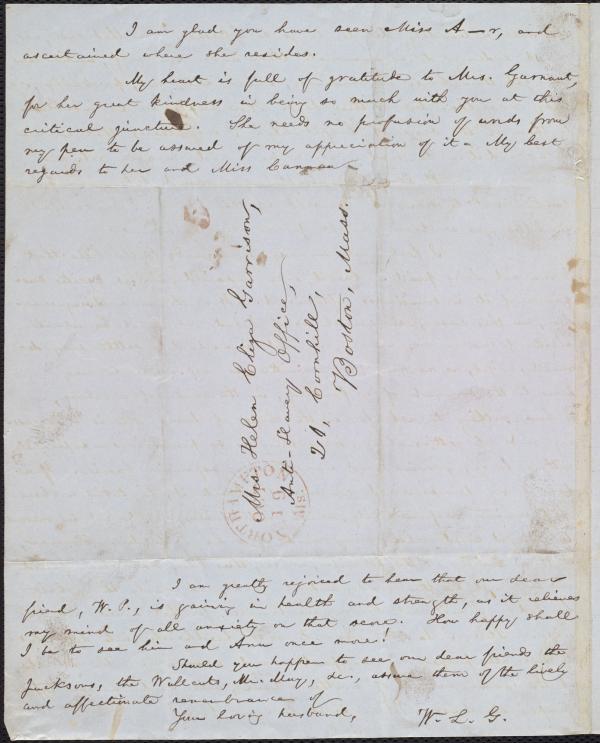 I am glad you have seen Miss A—r, and
ascertained where she resides.
My heart is full of gratitude to Mrs. Garnaut,
for her great kindness in being so much with you at this
critical juncture. She needs no profusion of words from
my pen to be assured of my appreciation of it. My best
regards to her and Miss
Mrs. Helen Eliza Garrison,
Anti-Slavery Office,
21, Cornhill,
Boston, Mass.
NORTHAMPTON
19
Ms.
I am greatly rejoiced to hear that our dear
friend, W. P., is gaining in health and strength, as it relieves
my mind of all anxiety on that score. How happy shall
I be to see him and Ann once more!
Should you happen to see our dear friends the
Jacksons, the Wallcuts, Mr. May, &c., assure them of the lively
and affectionate remembrance of
Your loving husband,
W. L. G.